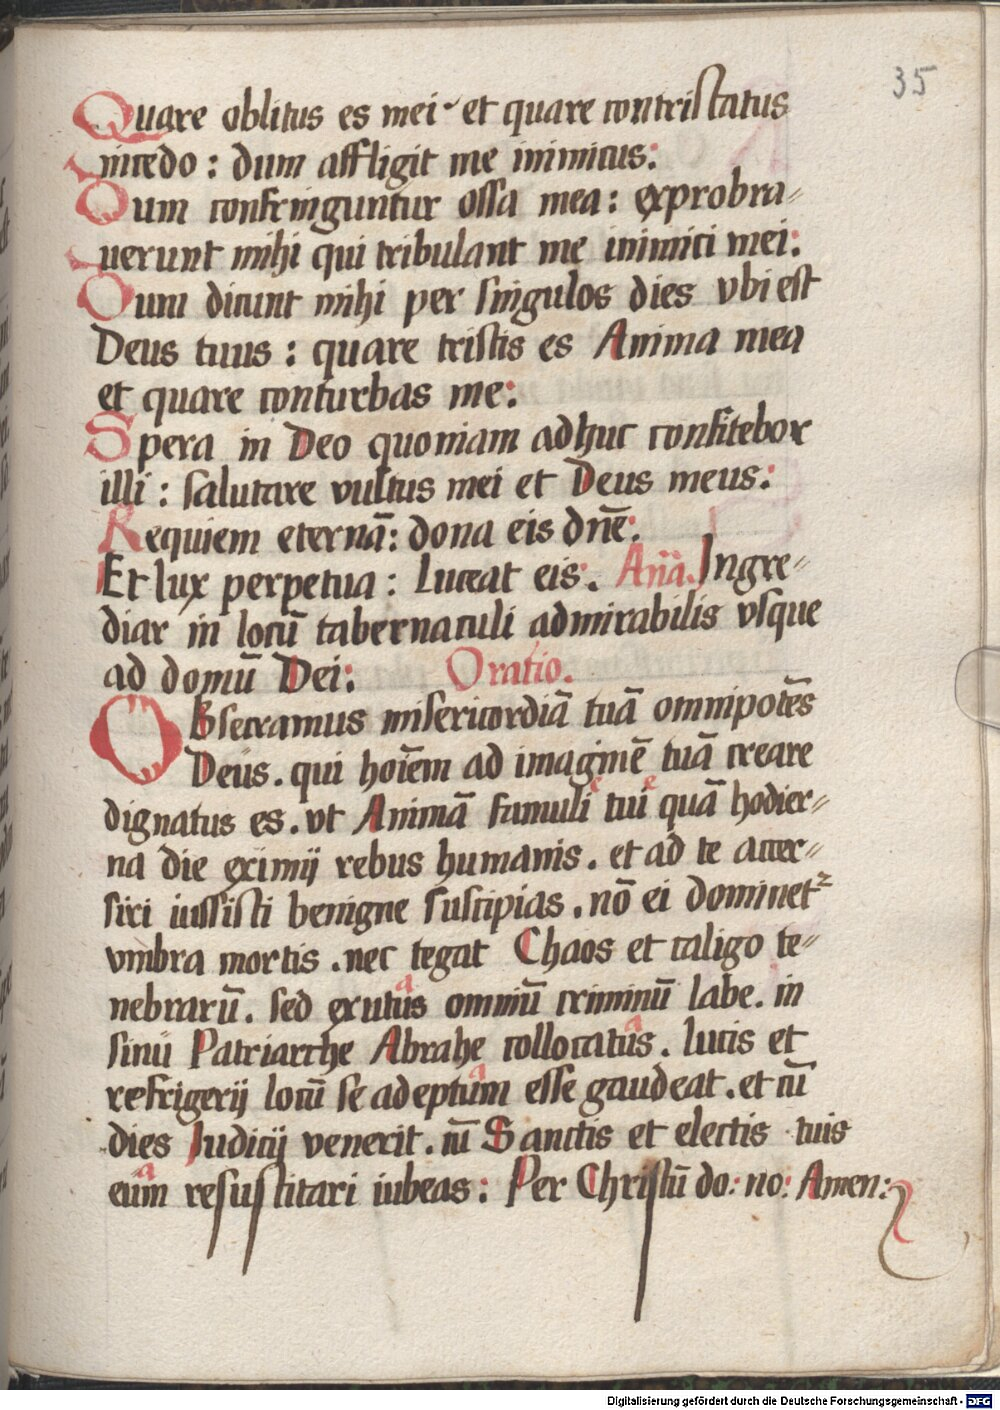 35
Quare oblitus es mei et quare contristatus
incedo : dum affligit me inimicus:
Dum confringuntur ossa mea : exprobra⸗
uerunt mihi qui tribulant me inimici mei:
Dum dicunt mihi per singulos dies vbi est
Deus tuus : quare tristis es Anima mea
et quare conturbas me:
Spera in Deo quoniam adhuc confitebor
illi : salutare vultus mei et Deus meus:
Requiem eternā: dona eis dn̄e:
Et lux perpetua : Luceat eis. An̄a. Ingre⸗
diar in locū tabernaculi admirabilis vsque
ad domū Dei: Oratio.
OBsecramus misericordiā tuā omnipotēs
Deus. qui hoīem ad imaginē tuā creare
e e
dignatus es. vt Animā famuli tui quā hodier⸗
na die eximij rebus humanis. et ad te accer⸗
siri iussisti benigne suscipias. nō ei dominetꝛ
vmbra mortis. nec tegat Chaos et caligo te⸗
a
nebrarū. sed exutus omniū criminū labe. in
a
sinu Patriarche Abrahe collocatus. lucis et
a
refrigerij locū se adeptum esse gaudeat. et cū
dies Iudicij venerit. cū Sanctis et electis tuis
a
eum resuscitari iubeas: Per Christū do: no: Amen:
Digitalisierung gefördert durch die Deutsche Forschungsgemeinschaft - DFG